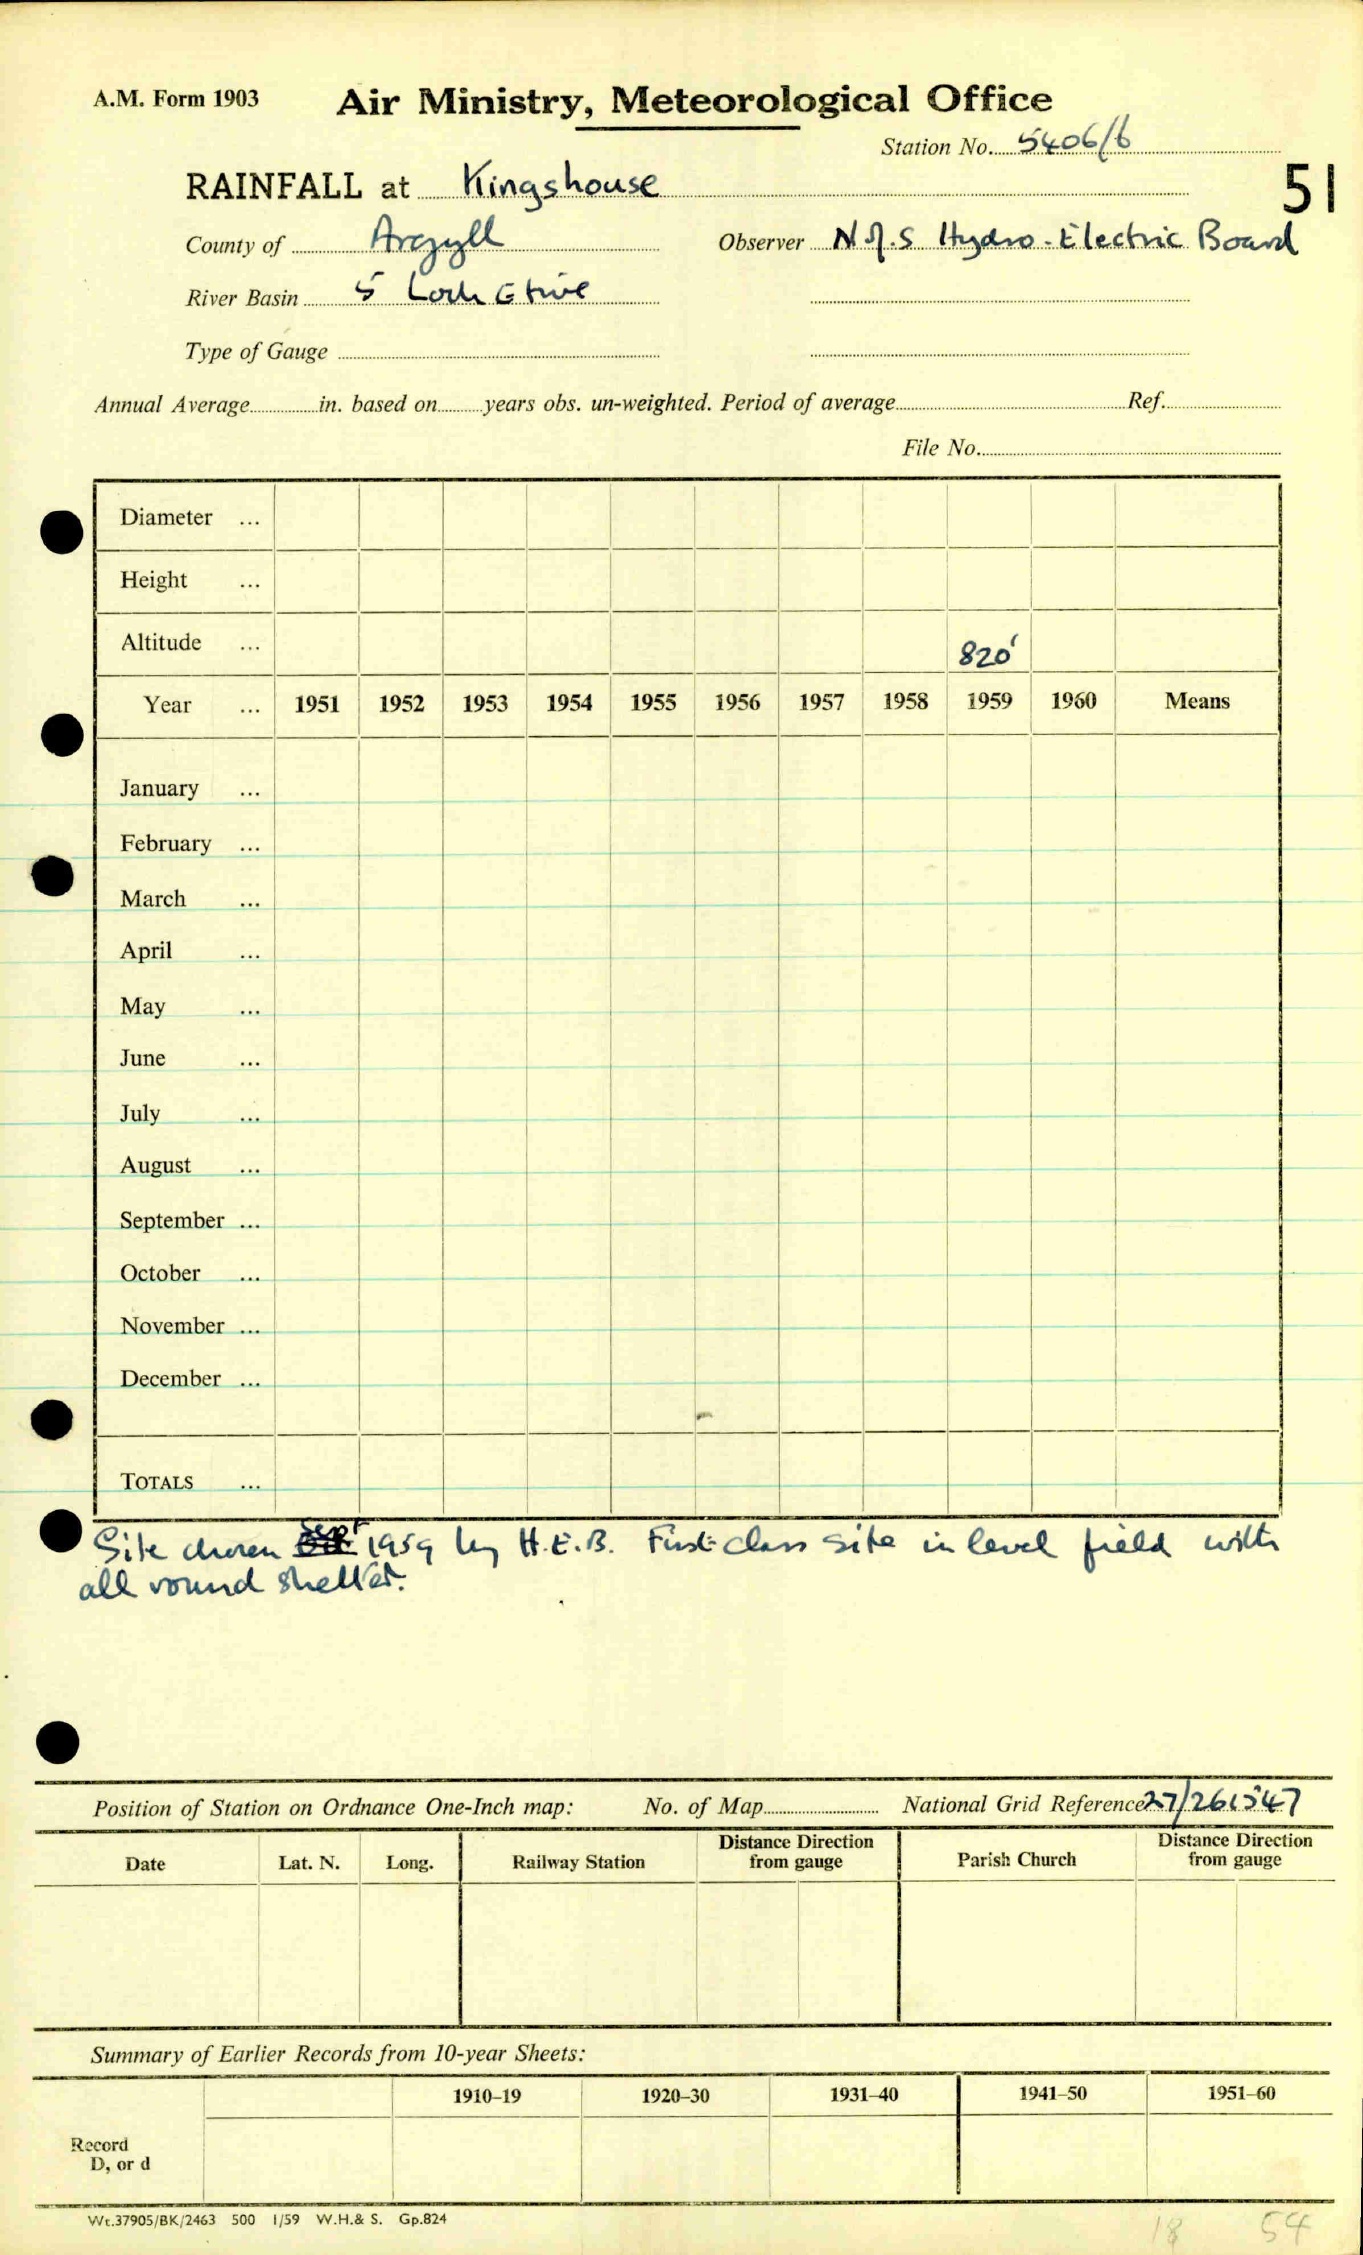 A.M. Form 1903
Air Ministry, Meteorological Office
Station No. 5406/6
51
RAINFALL at Kingshouse
County of Argyll Observer N of S Hydro-Electric Board
River Basin 5 Loch Etive
Type of Gauge
Annual Average in. based on years obs. un-weighted. Period of average Ref.
File No.
Diameter ...
Height ...
Altitude ... 820'
Year ... 1951 1952 1953 1954 1955 1956 1957 1958 1959 1960 Means
January ...
February ...
March ...
April ...
May ...
June ...
July ...
August ...
September ...
October ...
November ...
December ...
TOTALS ...
Site chosen Sept 1959 by H.E.B. First class site in level field with
all round shelter.
Position of Station on Ordnance One-Inch map: No. of Map National Grid Reference 27/261547
Date Lat. N. Long. Railway Station Distance Direction from gauge Parish Church Distance Direction from gauge
Summary of Earlier Records from 10-year Sheets:
1910–19 1920–30 1931–40 1941–50 1951–60
Record
D, or d
Wt.37905/BK/2463 500 1/59 W.H.& S. Gp.824
18 54